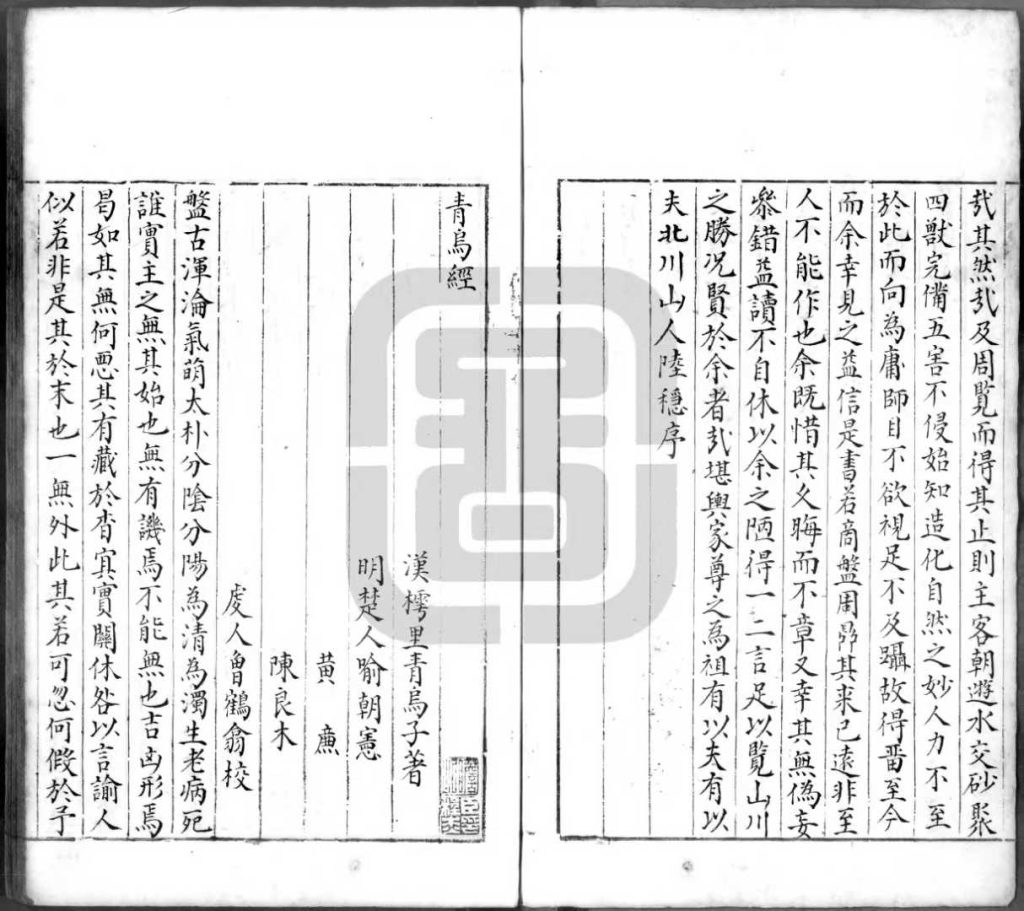 哉其然哉及周覽而得其止則主客朝遊水交砂聚
四獸完備五害不侵始知造化自然之妙人力不至
於此而向為庸師目不欲視足不及躡故得畱至今
而余幸見之益信是書若商盤周鼎其来已遠非至
人不能作也余既惜其久晦而不章又幸其無偽妄
叅錯益讀不自休以余之陋得一二言足以覽山川
之勝况賢於余者哉堪輿家尊之為祖有以夫有以
夫北川山人陸穩序
青烏經
漢樗里青烏子著
明楚人喻朝憲
黄㢘
陳良木
䖍人曾鶴翕校
盤古渾淪氣萌太朴分陰分陽為清為濁生老病死
誰實主之無其始也無有議焉不能無也吉凶形焉
曷如其無何惡其有藏於杳冥實關休咎以言諭人
似若非是其於末也一無外此其若可忽何假於予